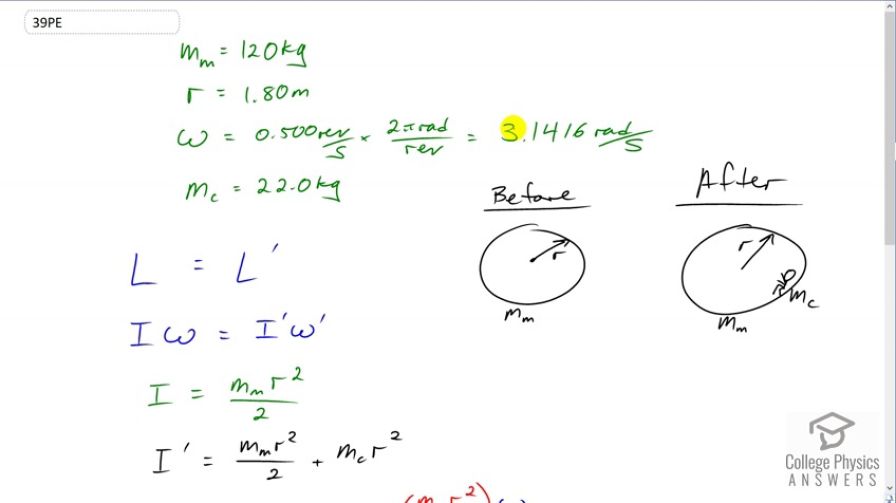 39PE
m_m = 120kg
r = 1.80m
ω = 0.500 rev/s × 2π rad/rev = 3.1416 rad/s
m_c = 22.0kg
Before
After
r
r
m_c
m_m
m_m
L = L'
Iω = I'ω'
I = m_m r²/2
I' = m_m r²/2 + m_c r²
College Physics
ANSWERS